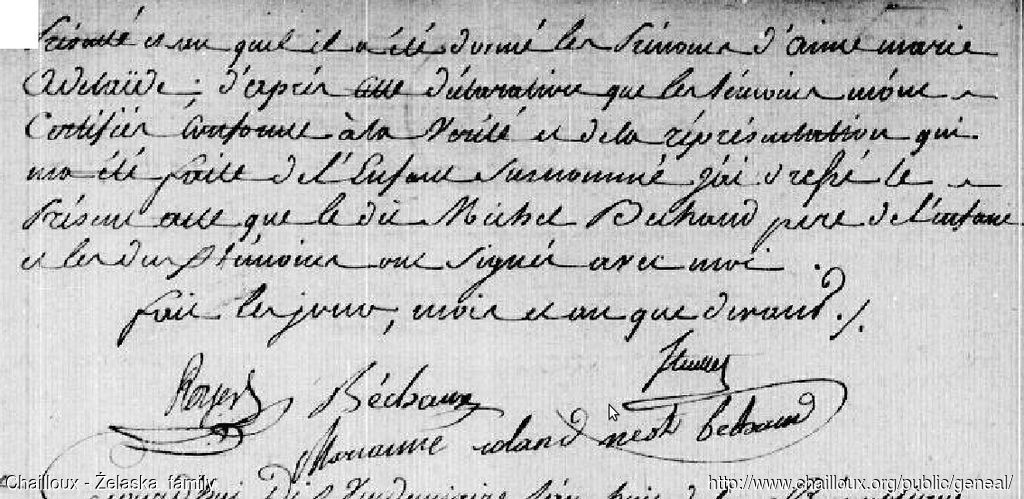 présenté et auquel il a été donné les prénoms d'anne marie
Adelaïde ; d'après cette déclaration que les témoins m'ont
Certifiés Conforme à la vérité et de la réprésentation qui
m'a été faite de l'Enfant susnommé j'ai dressé le
présent acte que le dit Michel Bechaud pere de l'enfant
et les dits témoins ont signés avec moi .
fait les jour, mois et an que devant ./.
Béchaux
Marianne roland bechaud
Chailloux - Żelaska family
http://www.chailloux.org/public/geneal/